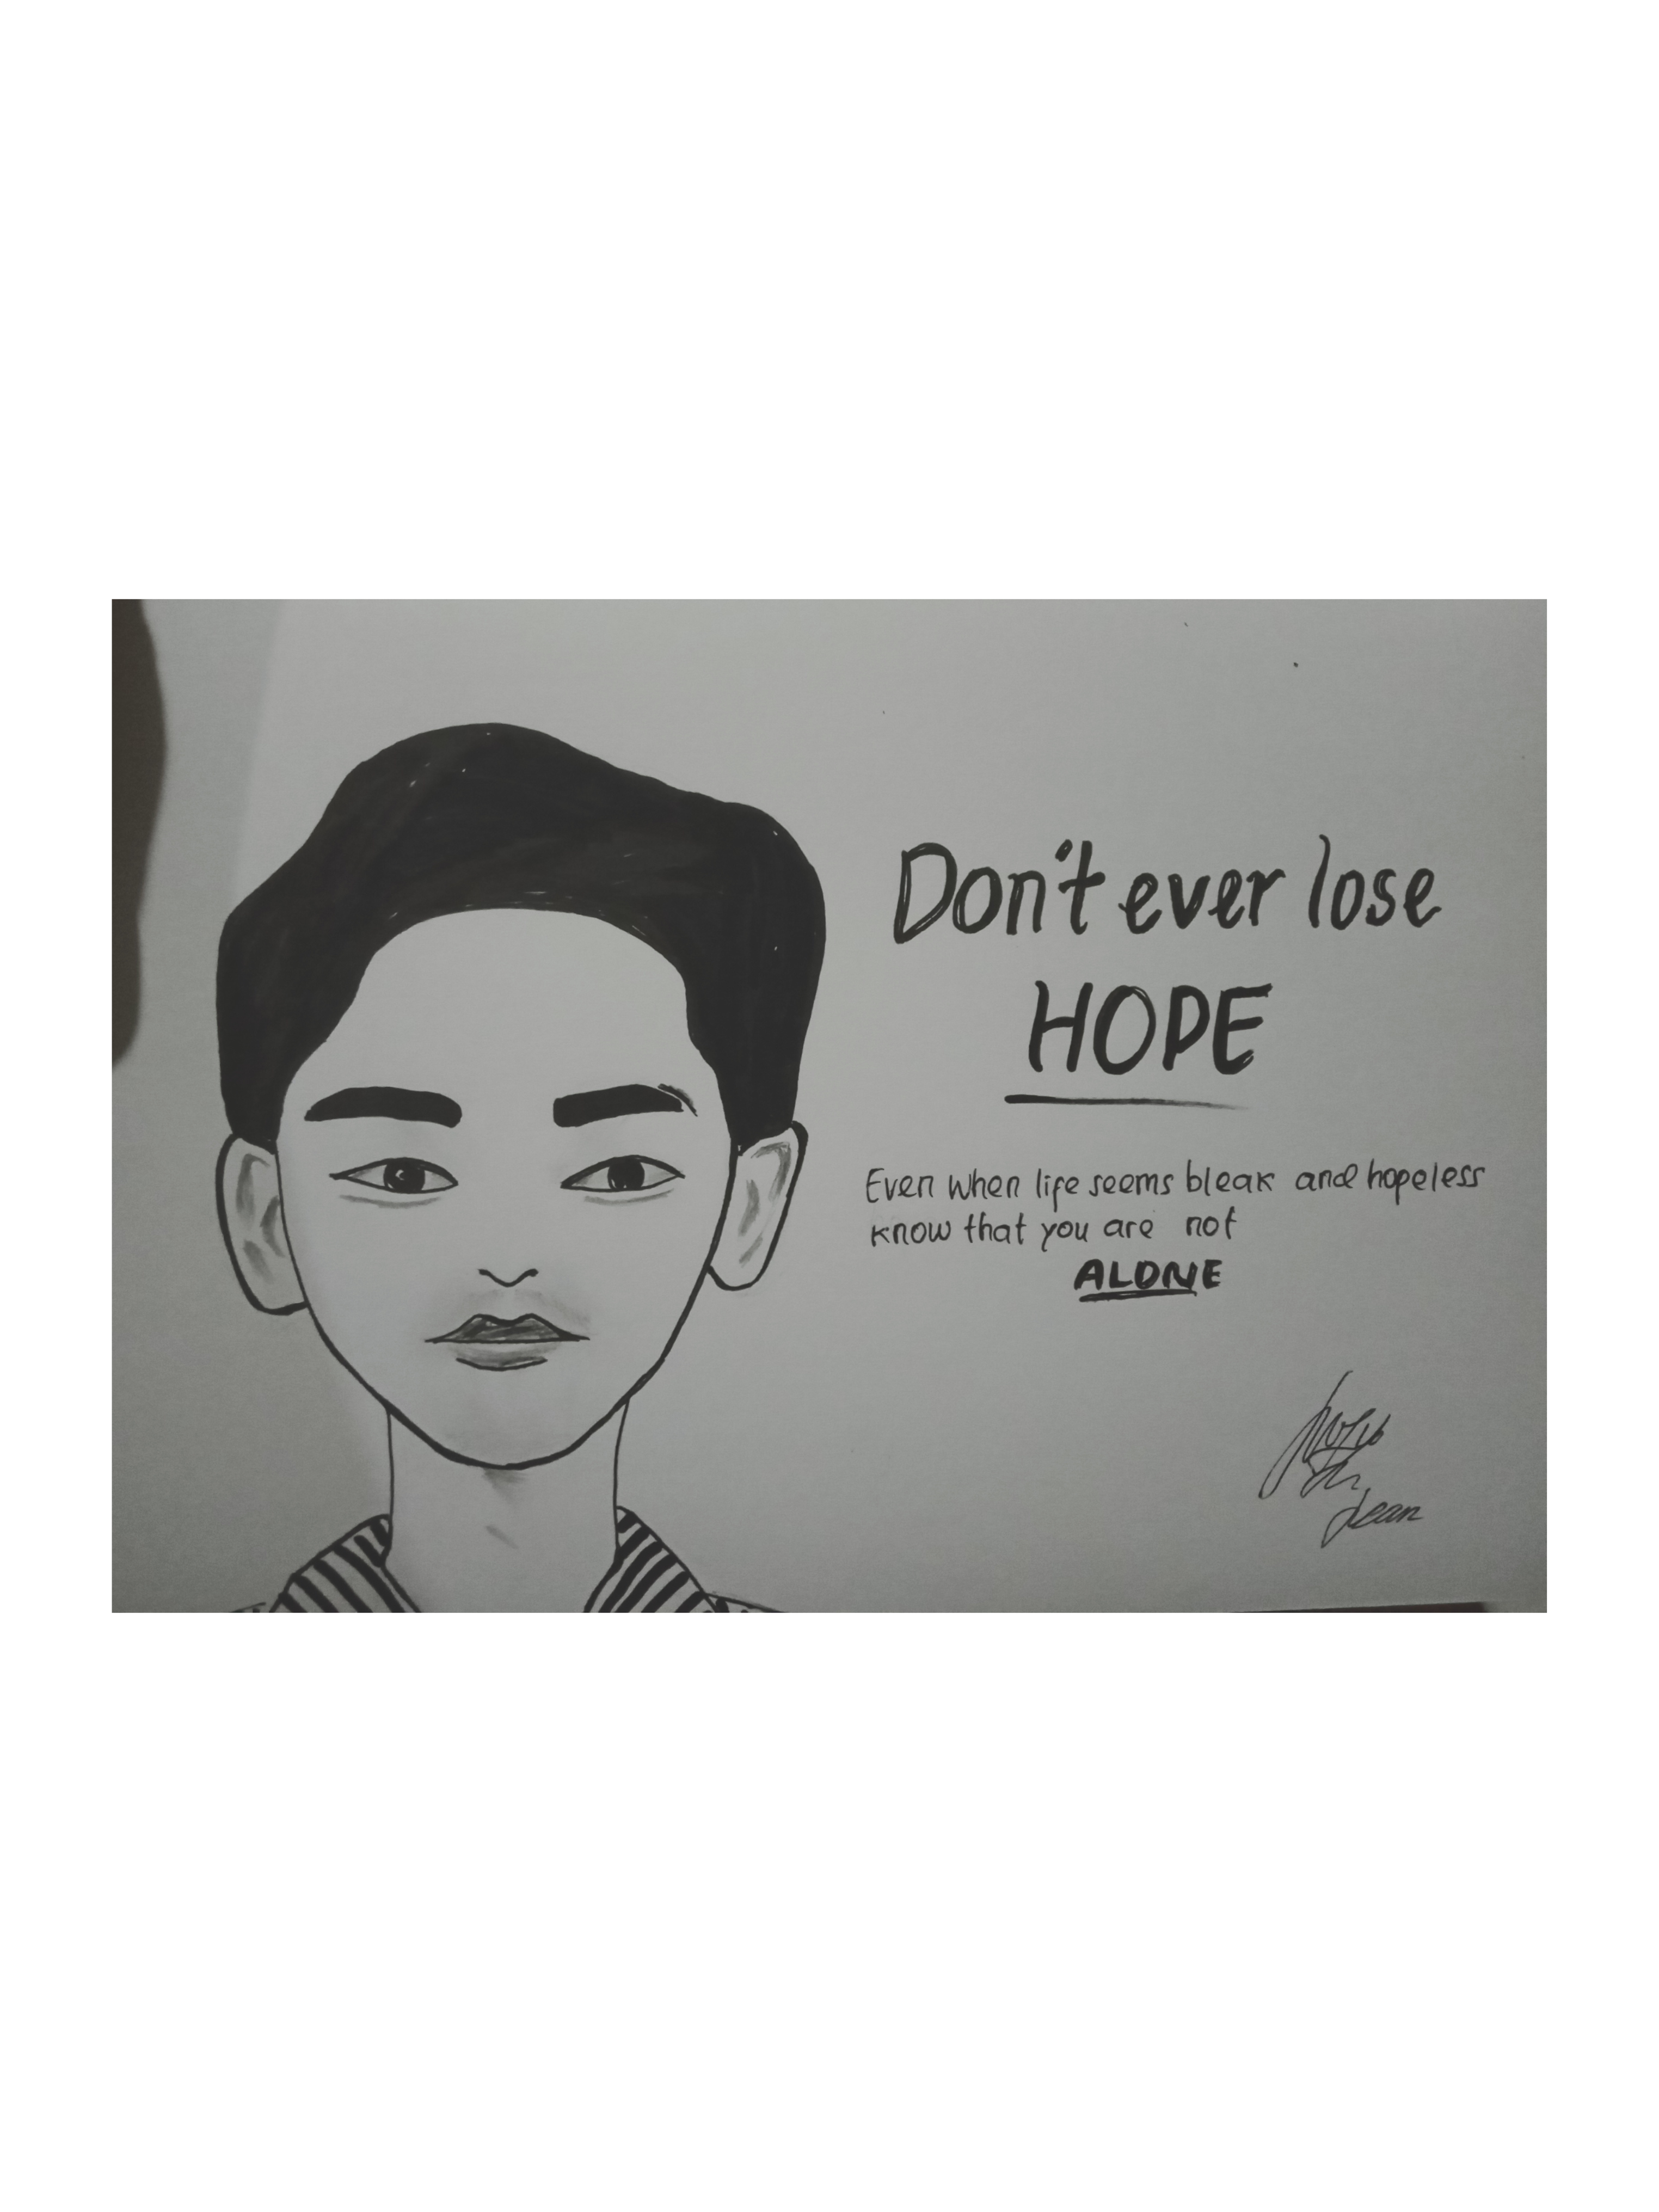 Don't ever lose
HOPE
Even when life seems bleak and hopeless
know that you are not
ALONE
Jean